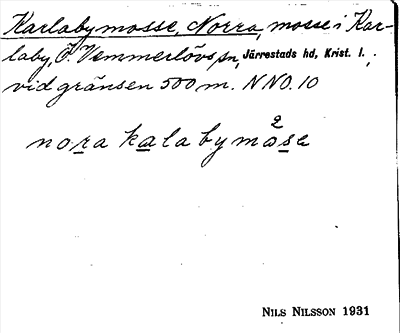 Karlabymosse, Norra, mosse i Kar-
laby, Ö. Vemmerlövs sn, Järrestads hd, Krist. l.,
vid gränsen 500 m. NNO. 10
nora kalabymåse
2
NILS NILSSON 1931